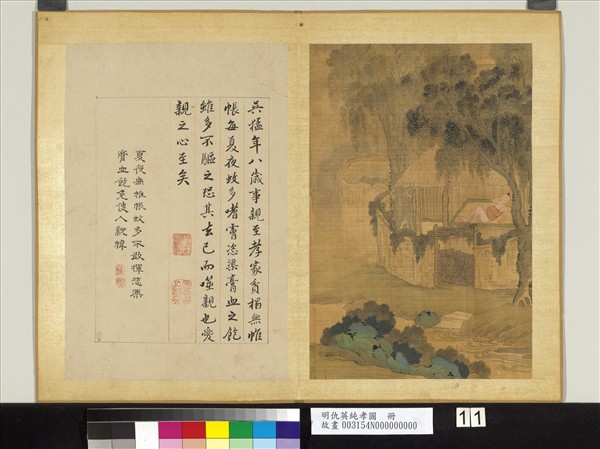 吳猛年八歲事親至孝家貧榻無帷
帳每夏夜蚊多噆膚恣渠膏血之飽
雖多不驅之恐其去己而噬親也愛
親之心至矣
夏夜無帷帳蚊多不敢揮恣渠
膏血飽免使入親幃
明仇英純孝圖 冊
故畫 003154N000000000
11